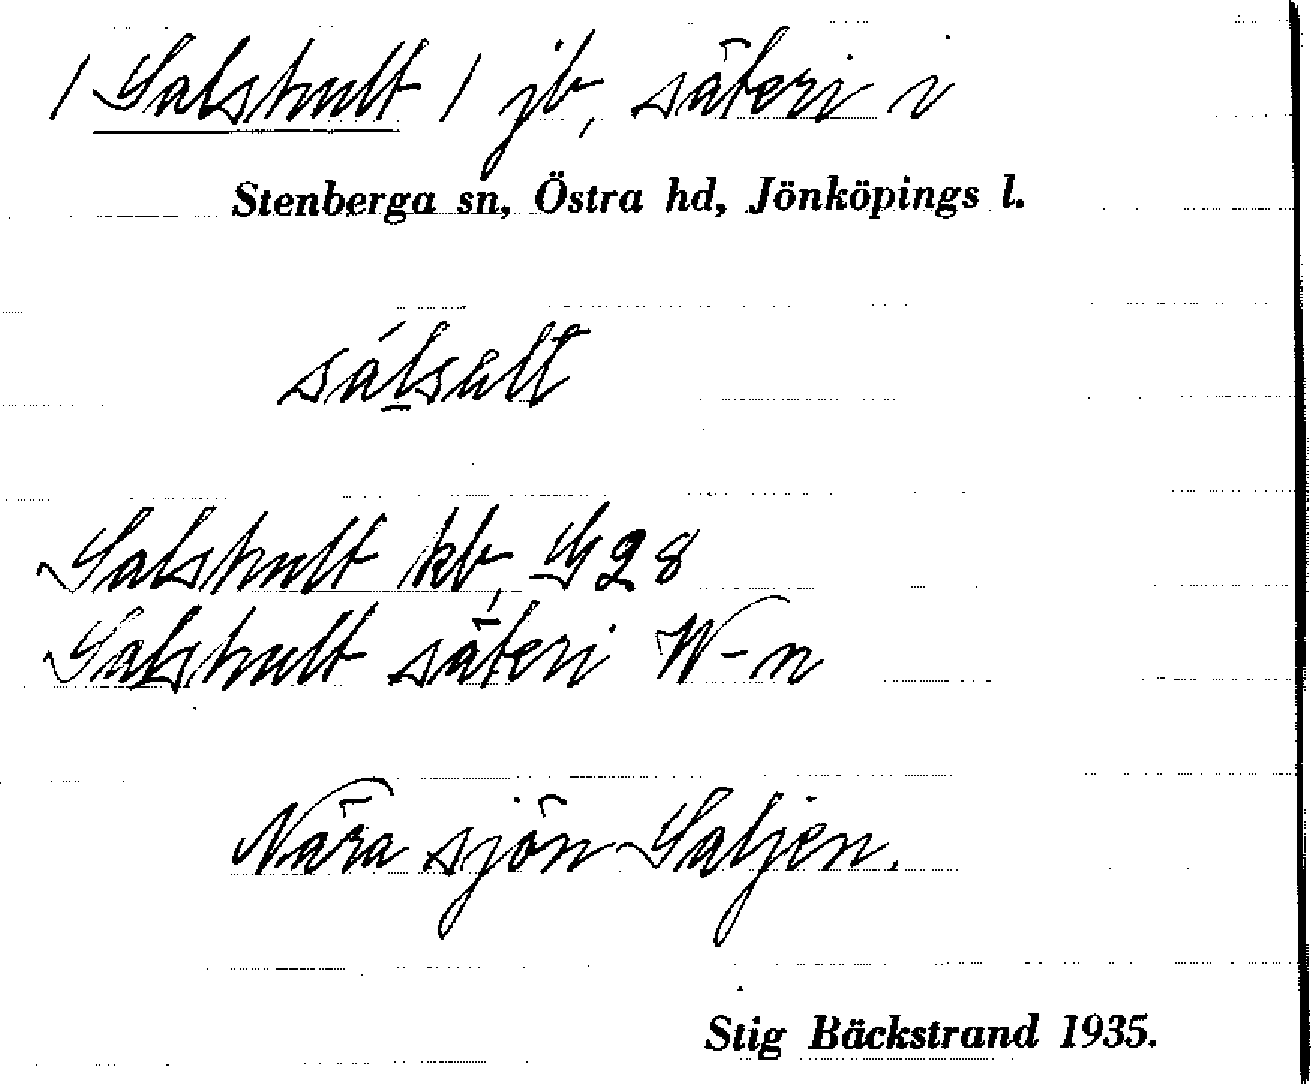 / Salshult / jb, säteri i
Stenberga sn, Östra hd, Jönköpings l.
sálsult
Salshult kb, G 28
Salshult säteri W-n
Nära sjön Saljen.
Stig Bäckstrand 1935.